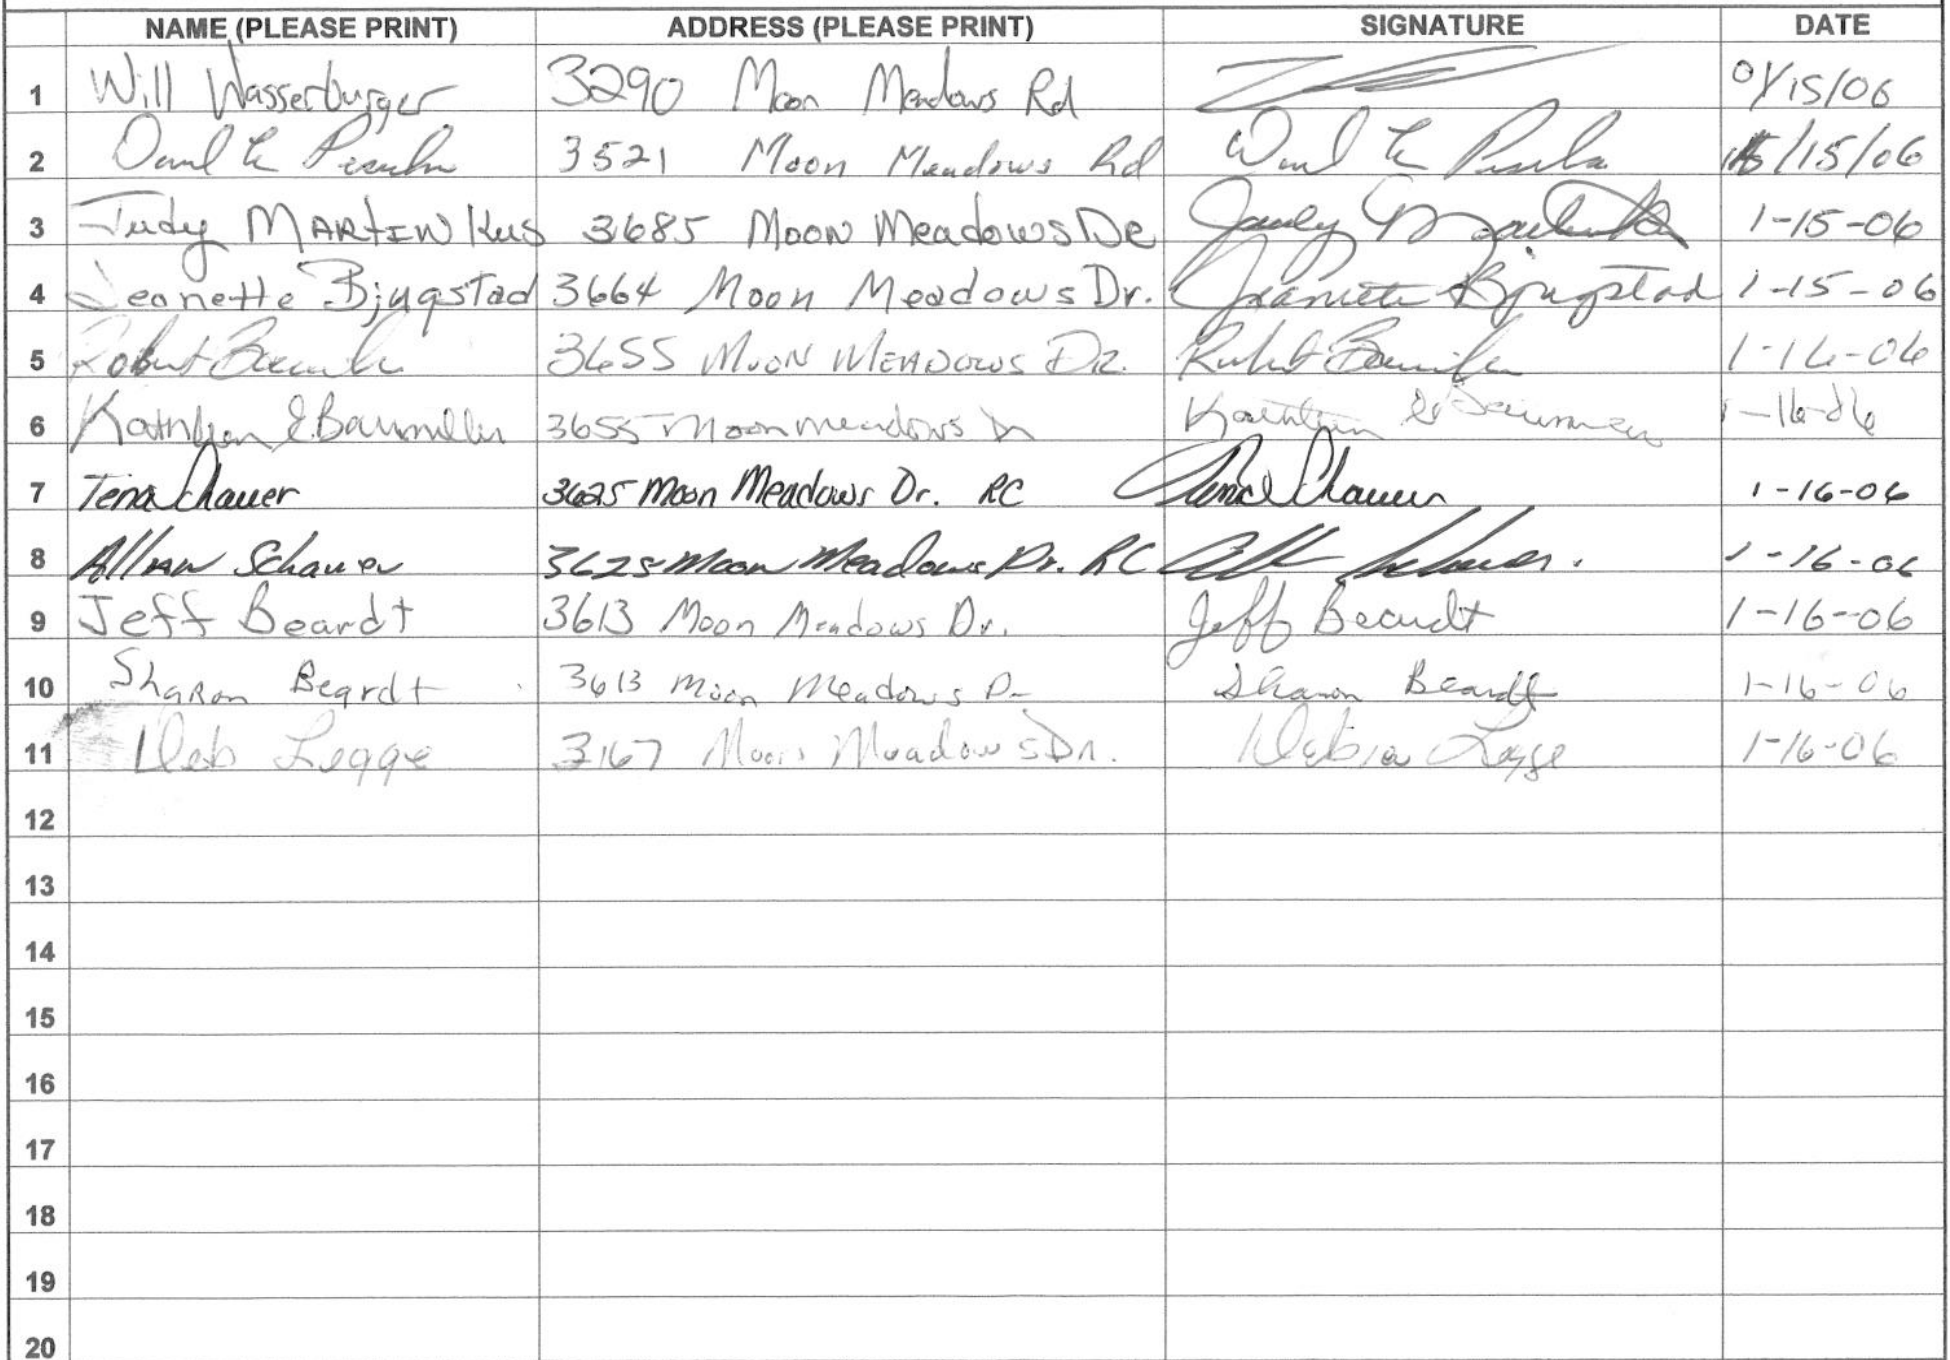 NAME (PLEASE PRINT) ADDRESS (PLEASE PRINT) SIGNATURE DATE
1 Will Wasserburger 3290 Moon Meadows Rd 01/15/06
2 3521 Moon Meadows Rd /15/06
3 Judy MARTINKus 3685 MOON MeadowsDr Judy 1-15-06
4 Jeanette Bjugstad 3664 Moon Meadows Dr. Jeanette Bjugstad 1-15-06
5 Robert 3655 MOON MEADOWS DR. Robert 1-16-06
6 Kathleen E. Baumiller 3655 Moonmeadows Dr Kathleen E 1-16-06
7 Tena Schauer 3625 Moon Meadows Dr. RC Tena Schauer 1-16-06
8 Allan Schauer 3625 Moon Meadows Dr. RC Schauer 1-16-06
9 Jeff Beardt 3613 Moon Meadows Dr. Jeff Beardt 1-16-06
10 Sharon Beardt 3613 Moon Meadows Dr Sharon Beardt 1-16-06
11 Deb Legge 3167 Moon Meadows Dr. Debra Legge 1-16-06
12
13
14
15
16
17
18
19
20